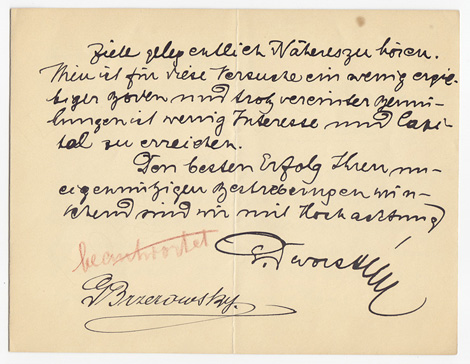 Ziele gelegentlich Näheres zu hören.
Wien ist für diese Versuche ein wenig ergie-
biger Boden und trotz vereinter Bemü-
hungen ist wenig Interesse und Capi-
tal zu erreichen.
Den besten Erfolg Ihren un-
eigennützigen Bestrebungen wün-
schend sind wir mit Hochachtung
beantwortet
Brzerowsky.